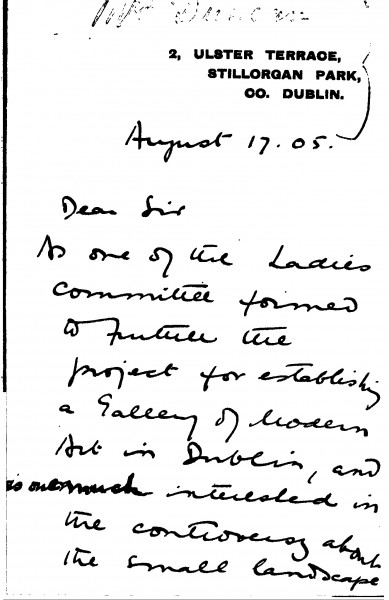 Mrs Duncan
2, ULSTER TERRACE,
STILLORGAN PARK,
CO. DUBLIN.
August 17. 05.
Dear Sir
As one of the Ladies
Committee formed
to further the
project for establishing
a Gallery of Modern
Art in Dublin, and
as one much interested in
the controversy about
the small landscape